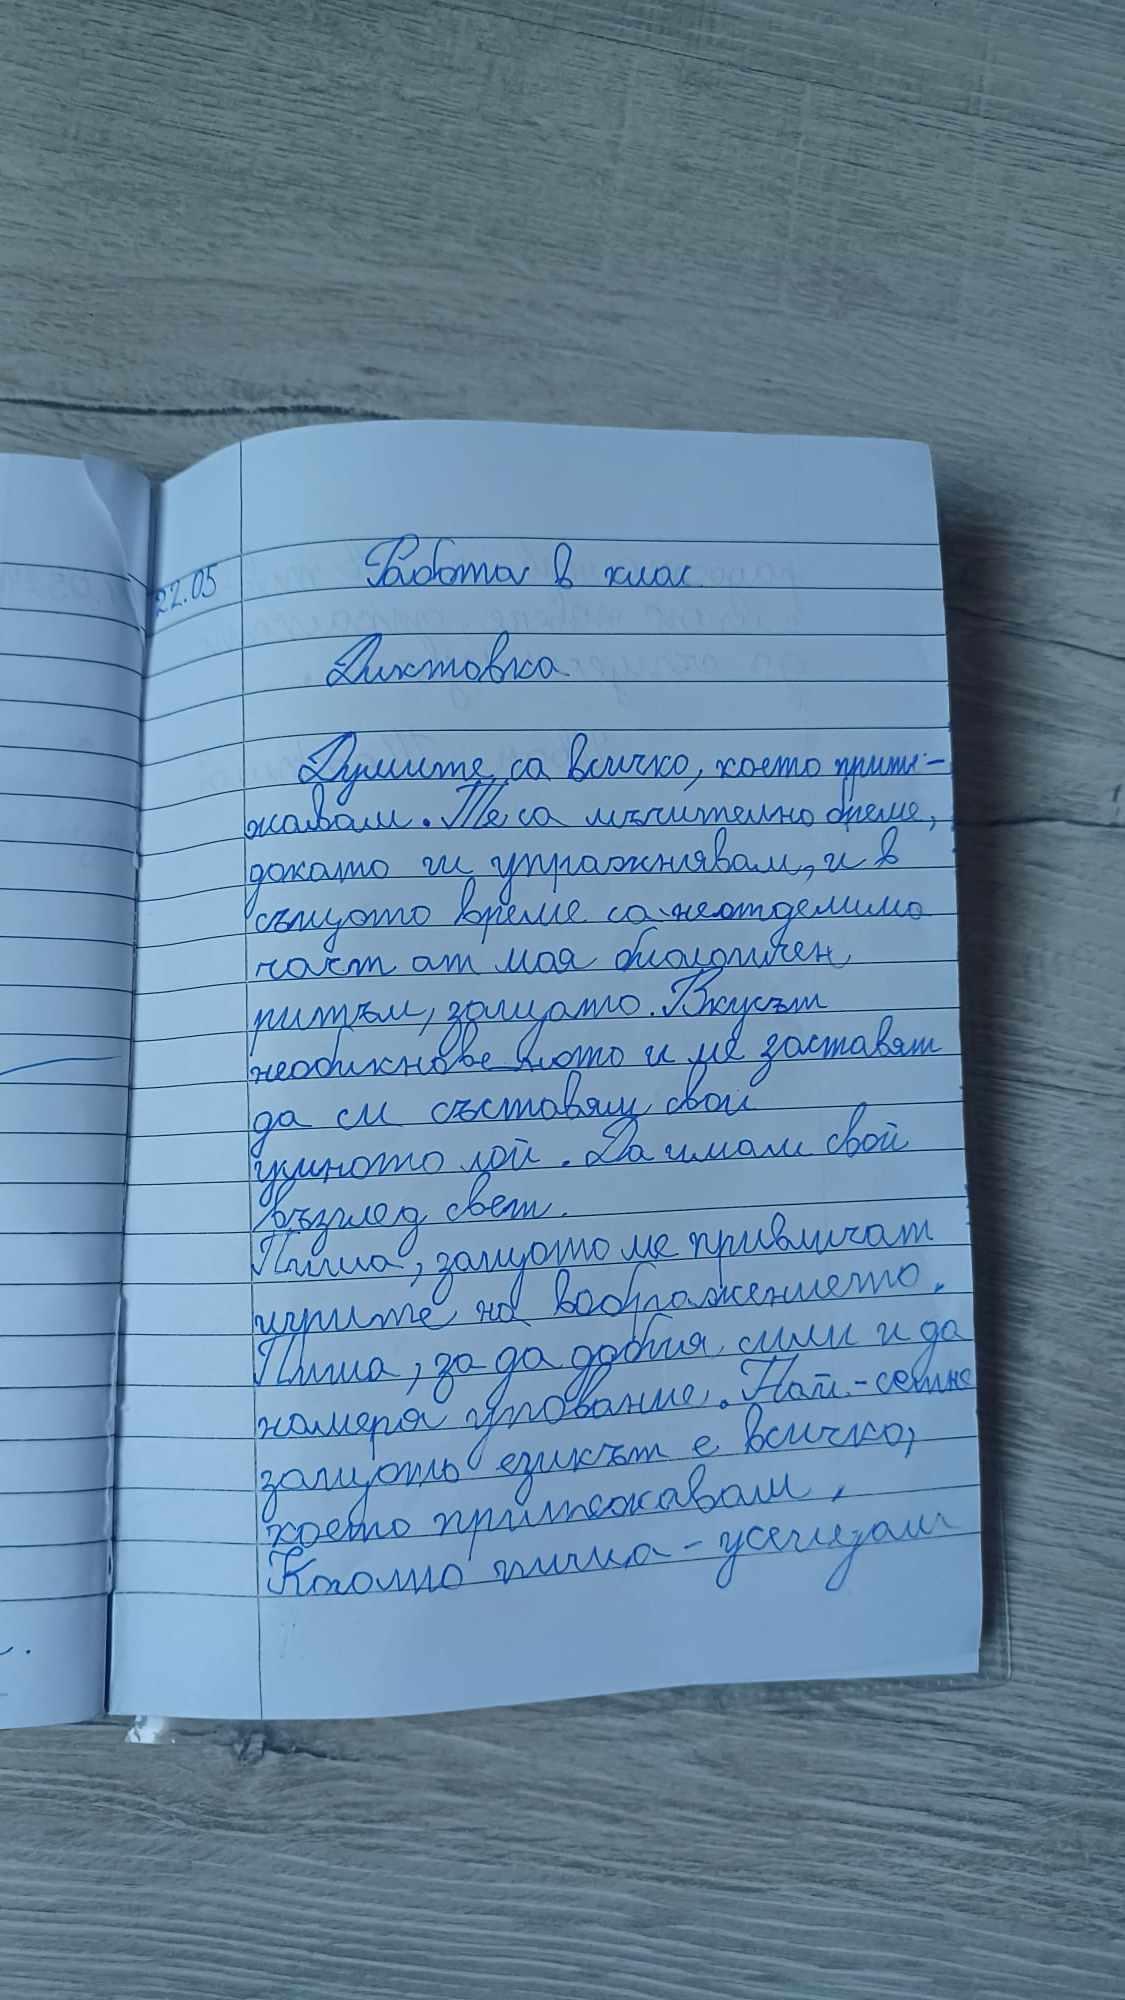 22.05 Работа в клас
Диктовка
Думите са всичко, което прите-
жавам. Те са мъчително бреме,
докато ги упражнявам, и в
същото време са неотделима
част от моя биологичен
ритъм, защото. Вкусът
необикнове ното и ме заставят
да си съставям свой
ой. Да имам свой
възглед свет.
Пиша, защото ме привличат
игрите на воображението.
Пиша, за да добия сили и да
намеря упование. Най-сетне
защото езикът е всичко,
което притежавам.
Когато пиша - усещам